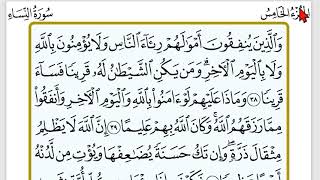 الجزء الخامس سورة النساء
وَٱلَّذِينَ يُنفِقُونَ أَمْوَٰلَهُمْ رِئَآءَ ٱلنَّاسِ وَلَا يُؤْمِنُونَ بِٱللَّهِ
وَلَا بِٱلْيَوْمِ ٱلْءَاخِرِ وَمَن يَكُنِ ٱلشَّيْطَٰنُ لَهُۥ قَرِينًا فَسَآءَ
قَرِينًا ٣٨ وَمَاذَا عَلَيْهِمْ لَوْ ءَامَنُوا۟ بِٱللَّهِ وَٱلْيَوْمِ ٱلْءَاخِرِ وَأَنفَقُوا۟
مِمَّا رَزَقَهُمُ ٱللَّهُ وَكَانَ ٱللَّهُ بِهِمْ عَلِيمًا ٣٩ إِنَّ ٱللَّهَ لَا يَظْلِمُ
مِثْقَالَ ذَرَّةٍ وَإِن تَكُ حَسَنَةً يُضَٰعِفْهَا وَيُؤْتِ مِن لَّدُنْهُ